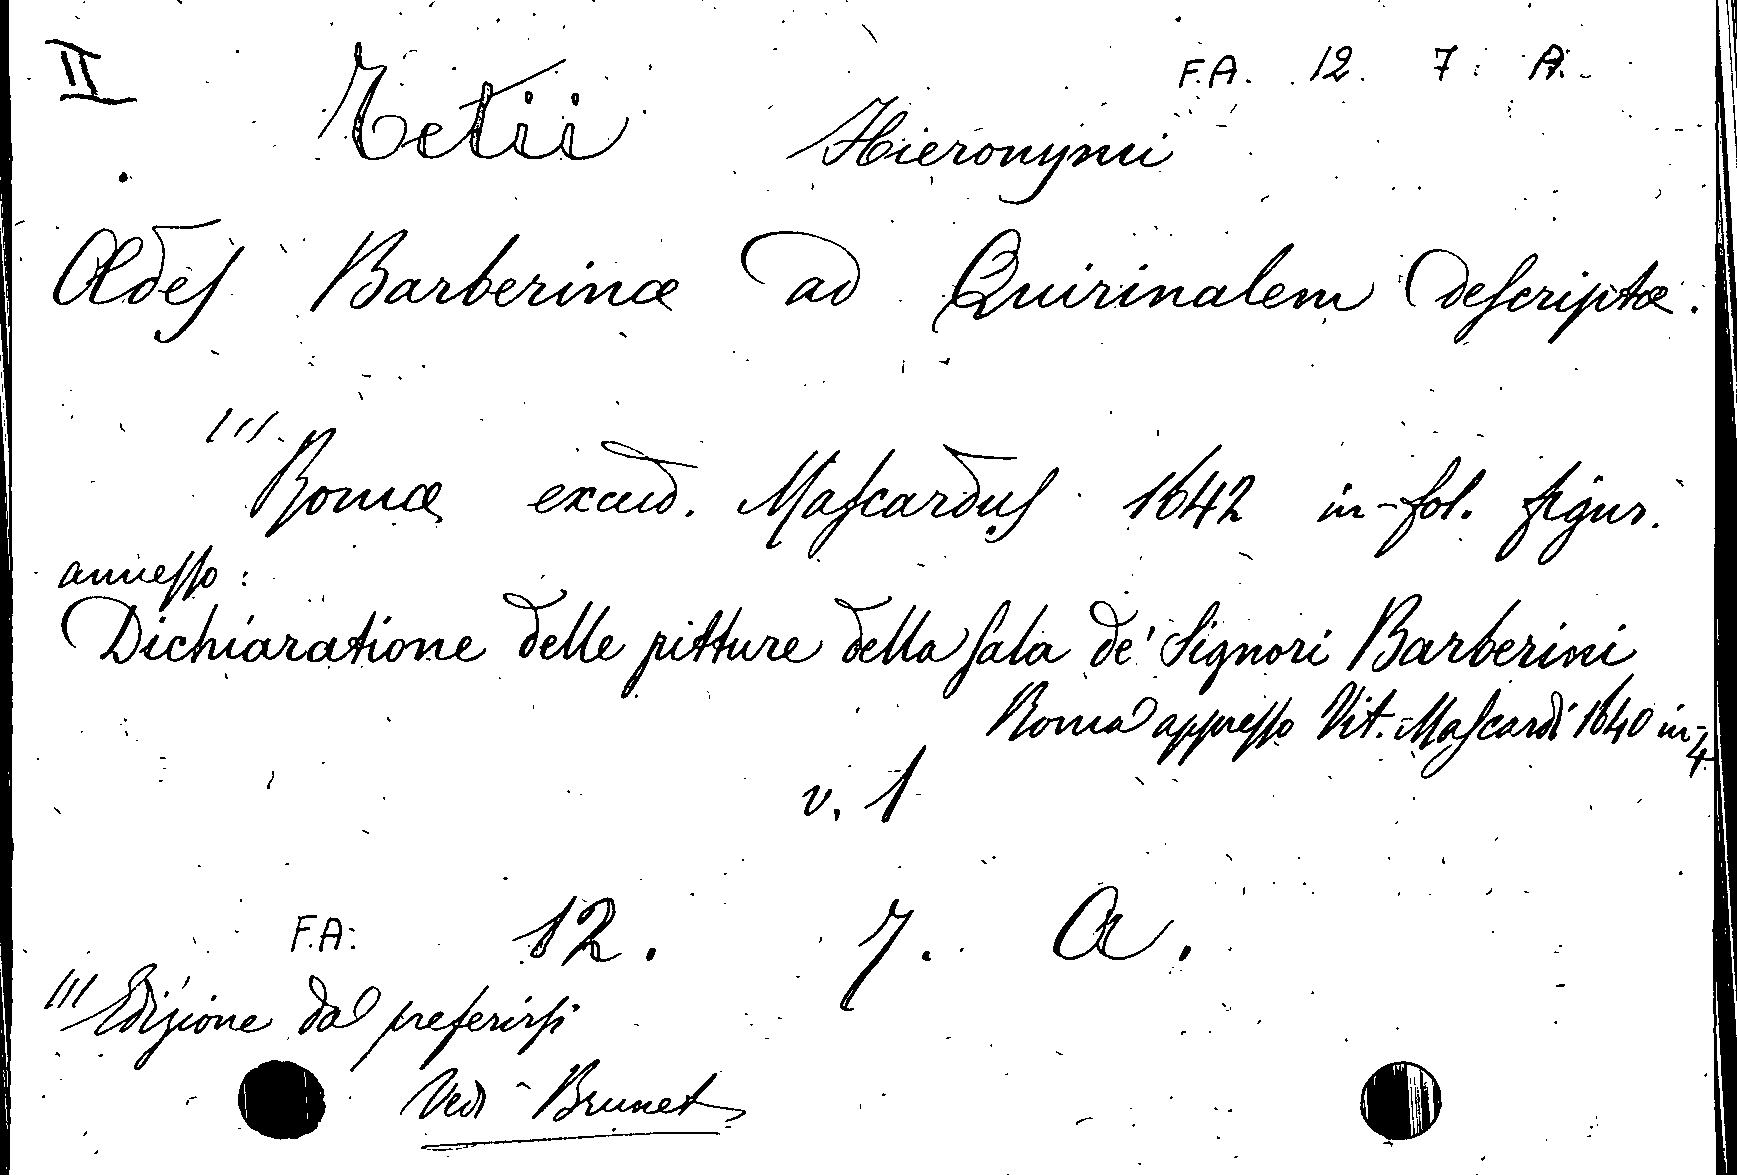 II
F.A. 12. 7. A.
Tetii Hieronymi
Ædes Barberinæ ad Quirinalem descriptæ.
(1) Romæ excud. Mascardus 1642 in-fol. figur.
annesso:
Dichiaratione delle pitture della sala de' Signori Barberini
Roma appresso Vit. Mascardi 1640 in-4
v. 1
F.A. 12. 7. A.
(1) Edizione da preferirsi
Vedi Brunet